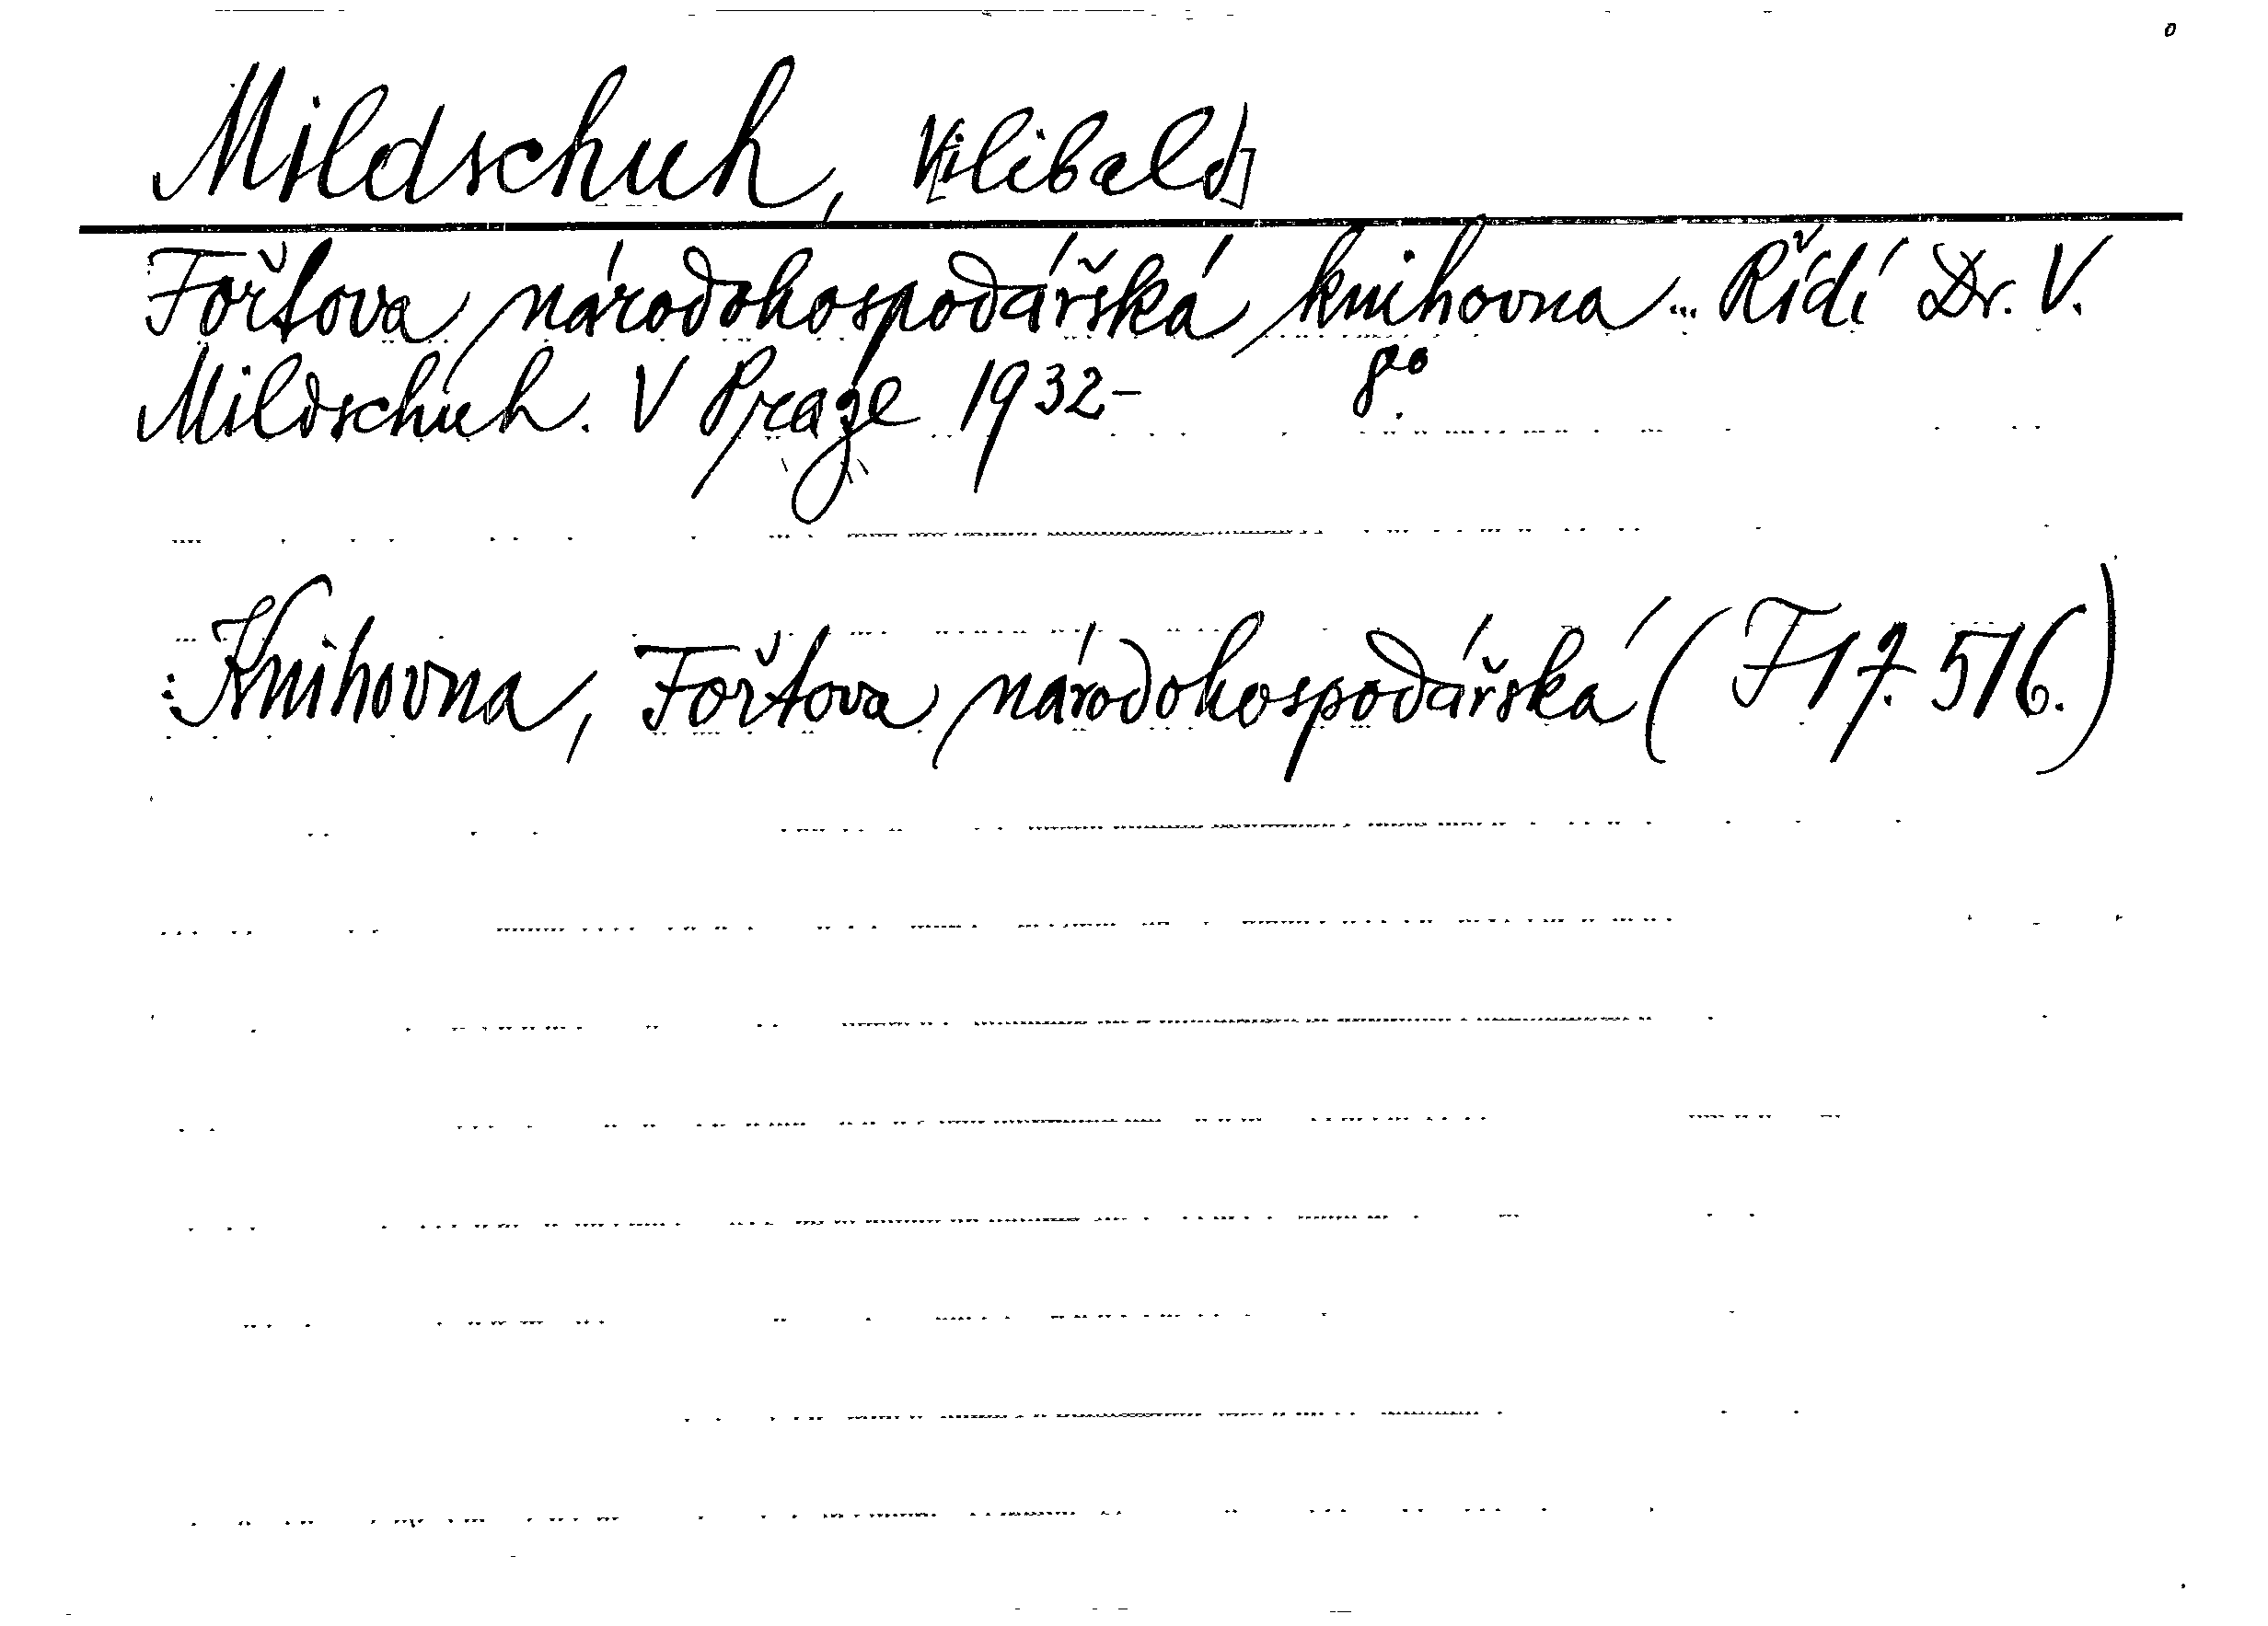 Mildschuh, V[ilibald]
Fořtova národohospodářská knihovna... Řídí Dr. V.
Mildschuh. V Praze 1932- 8°.
: Knihovna, Fořtova národohospodářská (F 17.516.)